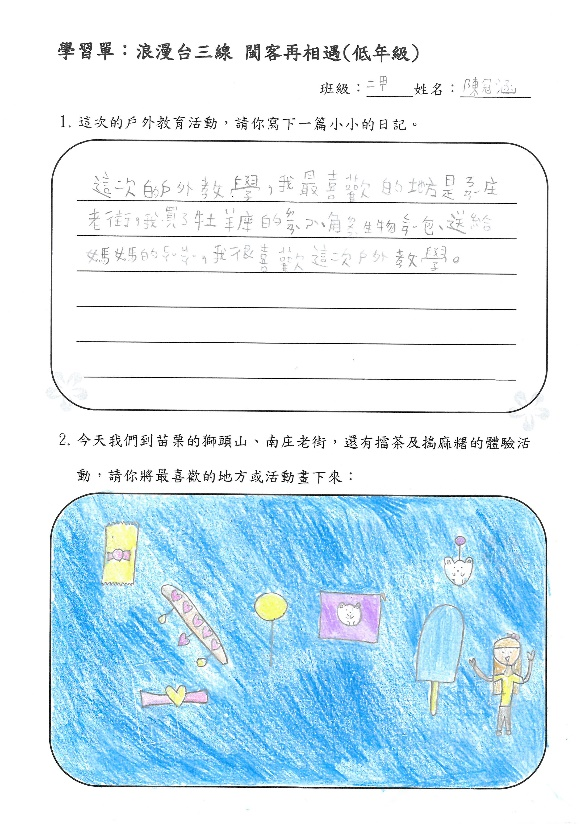 學習單：浪漫台三線 閩客再相遇(低年級)
班級：二甲 姓名：陳冠涵
1. 這次的戶外教育活動，請你寫下一篇小小的日記。
這次的戶外教學，我最喜歡的地方是南庄
老街，我買了牡羊座的 、 角 生物 包、送給
媽媽的 ，我很喜歡這次戶外教學。
2. 今天我們到苗栗的獅頭山、南庄老街，還有擂茶及搗麻糬的體驗活
動，請你將最喜歡的地方或活動畫下來：